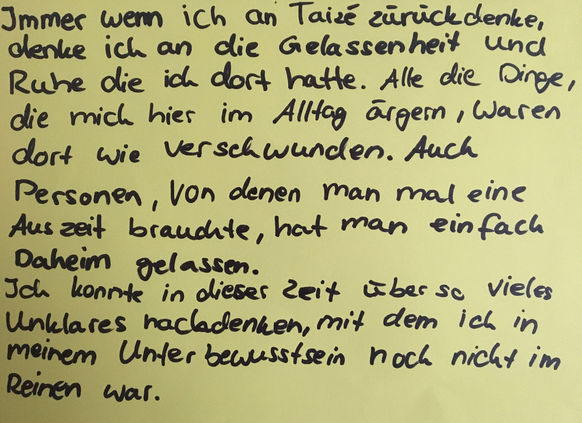 Immer wenn ich an Taizé zürückdenke,
denke ich an die Gelassenheit und
Ruhe die ich dort hatte. Alle die Dinge,
die mich hier im Alltag ärgern, waren
dort wie verschwunden. Auch
Personen, von denen man mal eine
Auszeit brauchte, hat man einfach
Daheim gelassen.
Ich konnte in dieser Zeit über so vieles
Unklares nachdenken, mit dem ich in
meinem Unterbewusstsein noch nicht im
Reinen war.